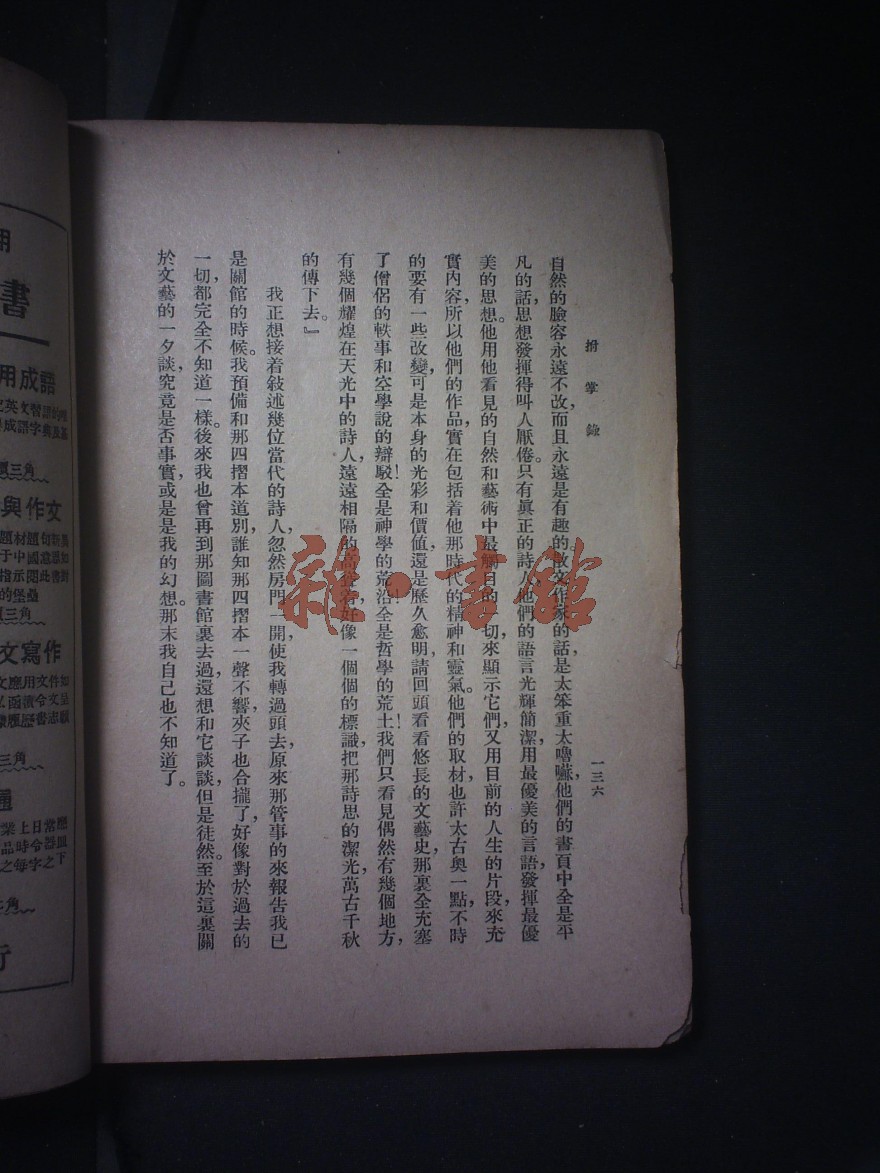 拊掌錄
一三六
自然的臉容永遠不改,而且永遠是有趣的。散文作家的話,是太笨重太嚕囌,他們的書頁中全是平
凡的話,思想發揮得叫人厭倦。只有眞正的詩人,他們的語言光輝簡潔,用最優美的言語,發揮最優
美的思想。他用他看見的自然和藝術中最觸目的一切來顯示它們,又用目前的人生的片段,來充
實內容,所以他們的作品,實在包括着他那時代的精神和靈氣。他們的取材也許太古奧一點,不時
的要有一些改變,可是本身的光彩和價値,還是歷久愈明,請回頭看看悠長的文藝史,那裏全充塞
了僧侶的軼事和空學說的辯駁!全是神學的荒沼!全是哲學的荒土!我們只看見偶然有幾個地方,
有幾個耀煌在天光中的詩人,遠遠相隔的高聳着,好像一個個的標識,把那詩思的潔光,萬古千秋
的傳下去。』
我正想接着敍述幾位當代的詩人,忽然房門一開,使我轉過頭去,原來那管事的來報告我已
是關館的時候。我預備和那四摺本道別,誰知那四摺本一聲不響,夾子也合攏了,好像對於過去的
一切,都完全不知道一樣。後來我也曾再到那圖書館裏去過,還想和它談談,但是徒然。至於這裏關
於文藝的一夕談,究竟是否事實,或是是我的幻想。那末我自己也不知道了。
雜·書館
書
用成語
三角
與作文
三角
文寫作
三角
通
角
行